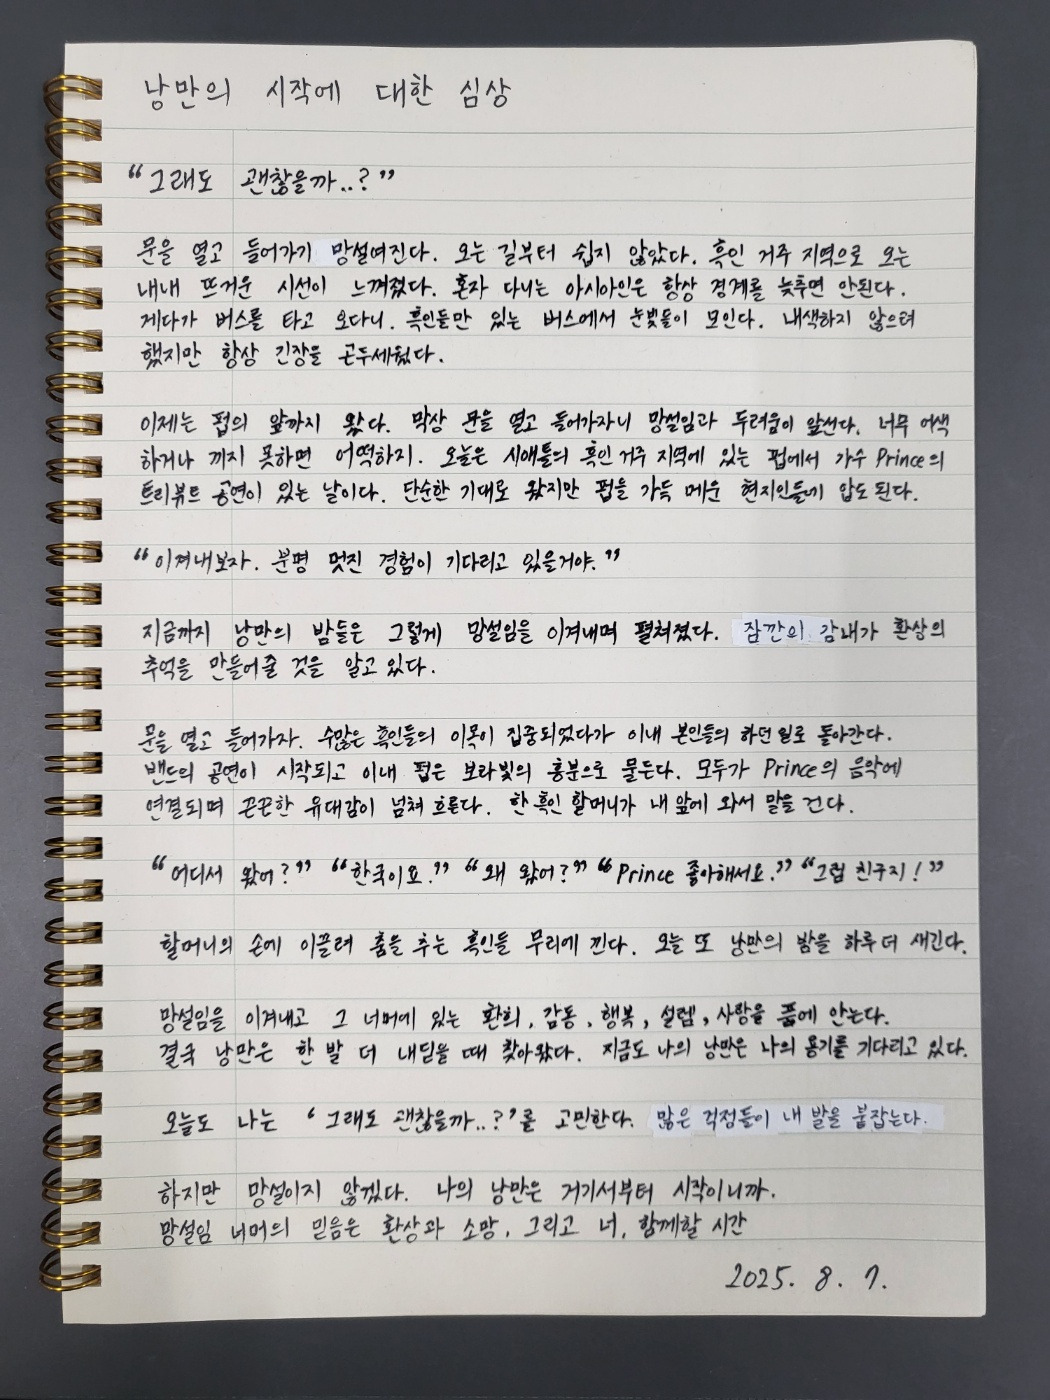 낭만의 시작에 대한 심상
“그래도 괜찮을까..?”
문을 열고 들어가기 망설여진다. 오는 길부터 쉽지 않았다. 흑인 거주 지역으로 오는
내내 뜨거운 시선이 느껴졌다. 혼자 다니는 아시아인은 항상 경계를 늦추면 안된다.
게다가 버스를 타고 오다니. 흑인들만 있는 버스에서 눈빛들이 모인다. 내색하지 않으려
했지만 항상 긴장을 곤두세웠다.
이제는 펍의 앞까지 왔다. 막상 문을 열고 들어가자니 망설임과 두려움이 앞선다. 너무 어색
하거나 끼지 못하면 어떡하지. 오늘은 시애틀의 흑인 거주 지역에 있는 펍에서 가수 Prince의
트리뷰트 공연이 있는 날이다. 단순한 기대로 왔지만 펍을 가득 메운 현지인들에 압도된다.
“이겨내보자. 분명 멋진 경험이 기다리고 있을거야.”
지금까지 낭만의 밤들은 그렇게 망설임을 이겨내며 펼쳐졌다. 잠깐의 감내가 환상의
추억을 만들어줄 것을 알고 있다.
문을 열고 들어가자. 수많은 흑인들의 이목이 집중되었다가 이내 본인들의 하던 일로 돌아간다.
밴드의 공연이 시작되고 이내 펍은 보라빛의 흥분으로 물든다. 모두가 Prince의 음악에
연결되며 끈끈한 유대감이 넘쳐 흐른다. 한 흑인 할머니가 내 앞에 와서 말을 건다.
“어디서 왔어?” “한국이요.” “왜 왔어?” “Prince 좋아해서요.” “그럼 친구지!”
할머니의 손에 이끌려 춤을 추는 흑인들 무리에 낀다. 오늘 또 낭만의 밤을 하루 더 새긴다.
망설임을 이겨내고 그 너머에 있는 환희, 감동, 행복, 설렘, 사랑을 품에 안는다.
결국 낭만은 한 발 더 내딛을 때 찾아왔다. 지금도 나의 낭만은 나의 용기를 기다리고 있다.
오늘도 나는 ‘그래도 괜찮을까..?’를 고민한다. 많은 걱정들이 내 발을 붙잡는다.
하지만 망설이지 않겠다. 나의 낭만은 거기서부터 시작이니까.
망설임 너머의 믿음은 환상과 소망, 그리고 너, 함께할 시간
2025. 8. 7.